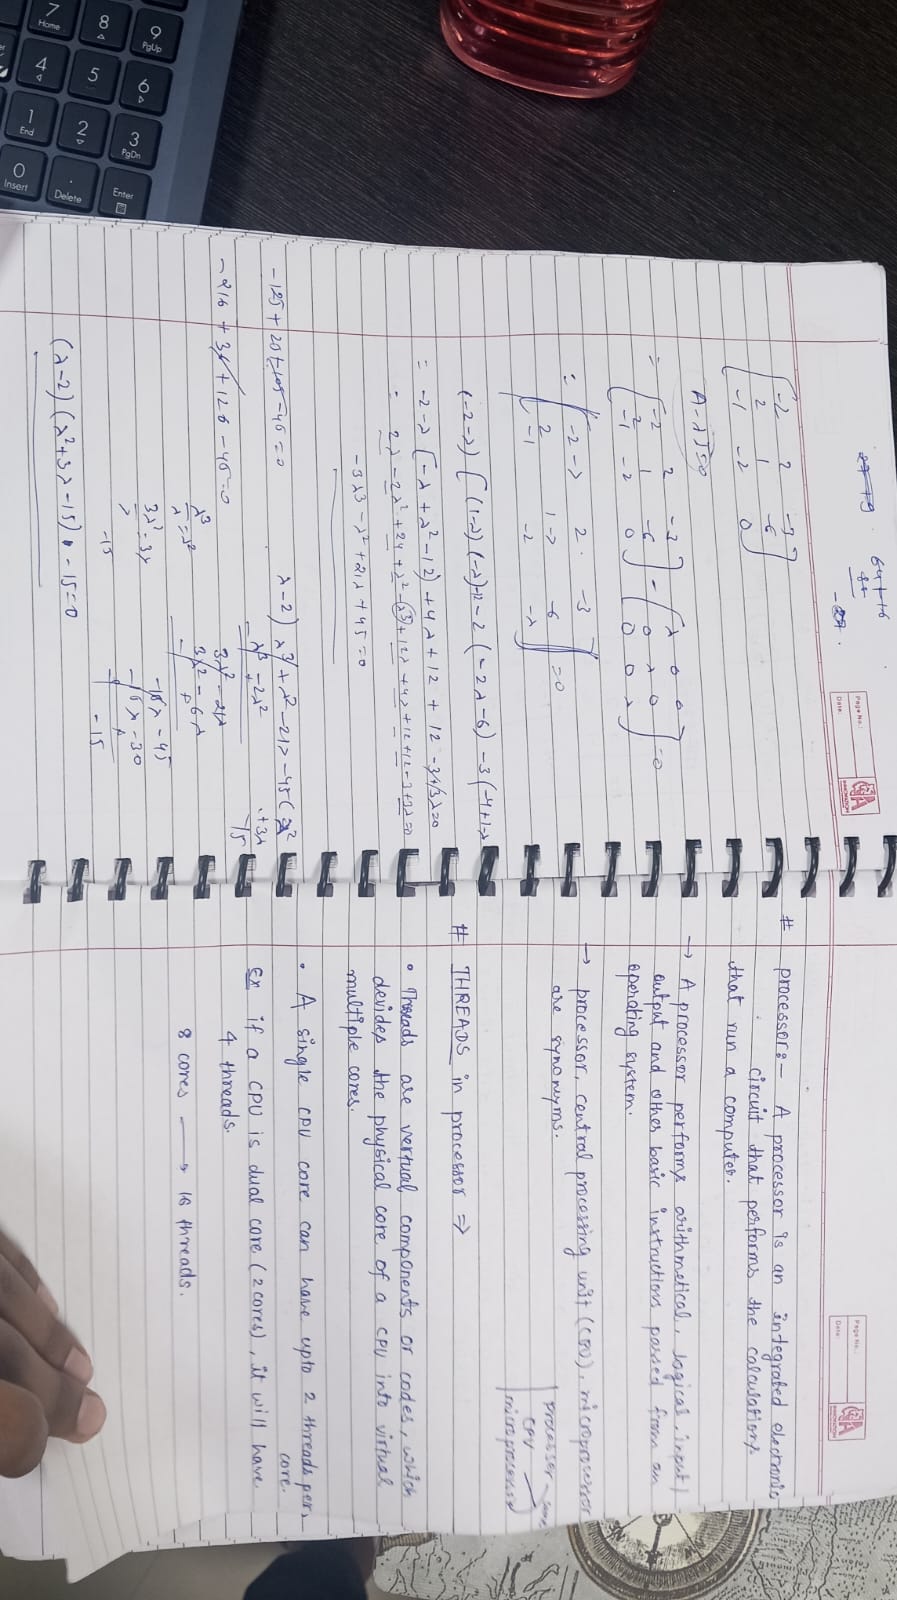 64+16
Page No.:
Date:
INNOVATION
-2 2 -3
2 1 -6
-1 -2 0
A-λI=0
= [-2 2 -3] - [λ 0 0] =0
2 1 -6 0 λ 0
-1 -2 0 0 0 λ
= [-2-λ 2 -3] =0
2 1-λ -6
-1 -2 -λ
(-2-λ) [(1-λ)(-λ)-12-2(-2λ-6)-3(-4+1-λ
= -2-λ [-λ+λ²-12)+4λ+12+12-3+3λ=0
= 2λ-2λ²+24+λ²-λ³+12λ+4λ+12+12-3+3λ=0
-3λ3-λ²+21λ+45=0
-125+20+105-45=0
-216+36+126-45=0
λ-2) λ³+λ²-21λ-45(λ²
λ³-2λ² +3λ
-15
3λ²-21λ
3λ²-6λ
-15λ-45
-15λ-30
-15
λ³/λ=λ²
3λ²/λ=3λ
-15
(λ-2)(λ²+3λ-15)-15=0
Page No.:
Date:
INNOVATION
# processor:- A processor is an integrated electronic
circuit that performs the calculations
that run a computer.
→ A processor performs arithmetical, logical, input/
output and other basic instructions passed from an
operating system.
→ processor, central processing unit (CPU), microprocessor
are synonyms.
processer - same
CPU
microprocessor
# THREADS in processor ⇒
• Threads are vertual components or codes, which
devides the physical core of a CPU into virtual
multiple cores.
• A single CPU core can have upto 2 threads per
core.
Ex if a CPU is dual core (2 cores), it will have
4 threads.
8 cores → 16 threads.
9 PgUp
6
3 PgDn
Enter
8
5
2
. Delete
7 Home
4
1 End
0 Insert